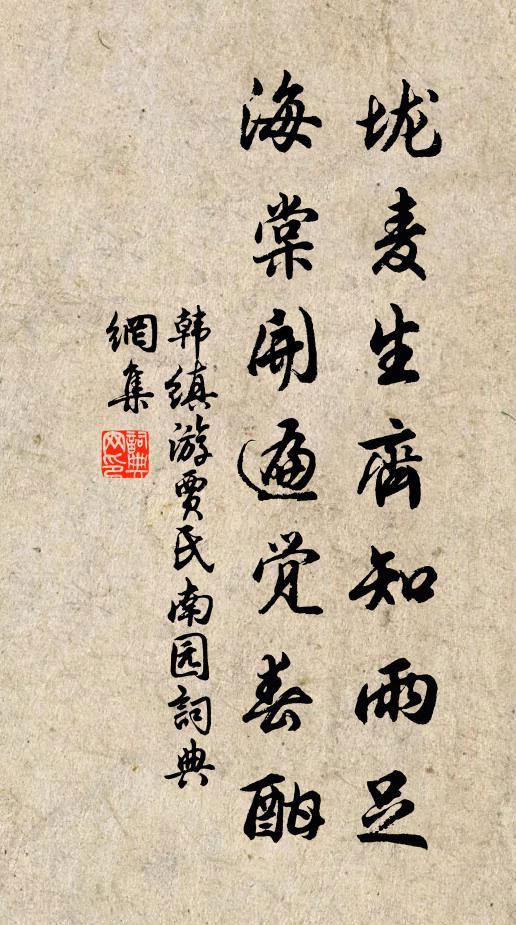 垅麦生齊知雨足
海棠開遍觉春酣
韩缜游贾氏南园詞典
網集
詞典網印